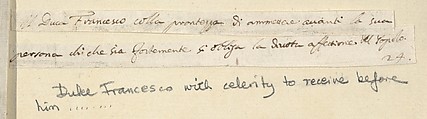 Il Duca Francesco colla prontezza di ammettere avanti la sua
persona chi che sia fortemente si obliga la dovuta affectione. Al Popolo
24.
Duke Francesco with celerity to receive before
him ........